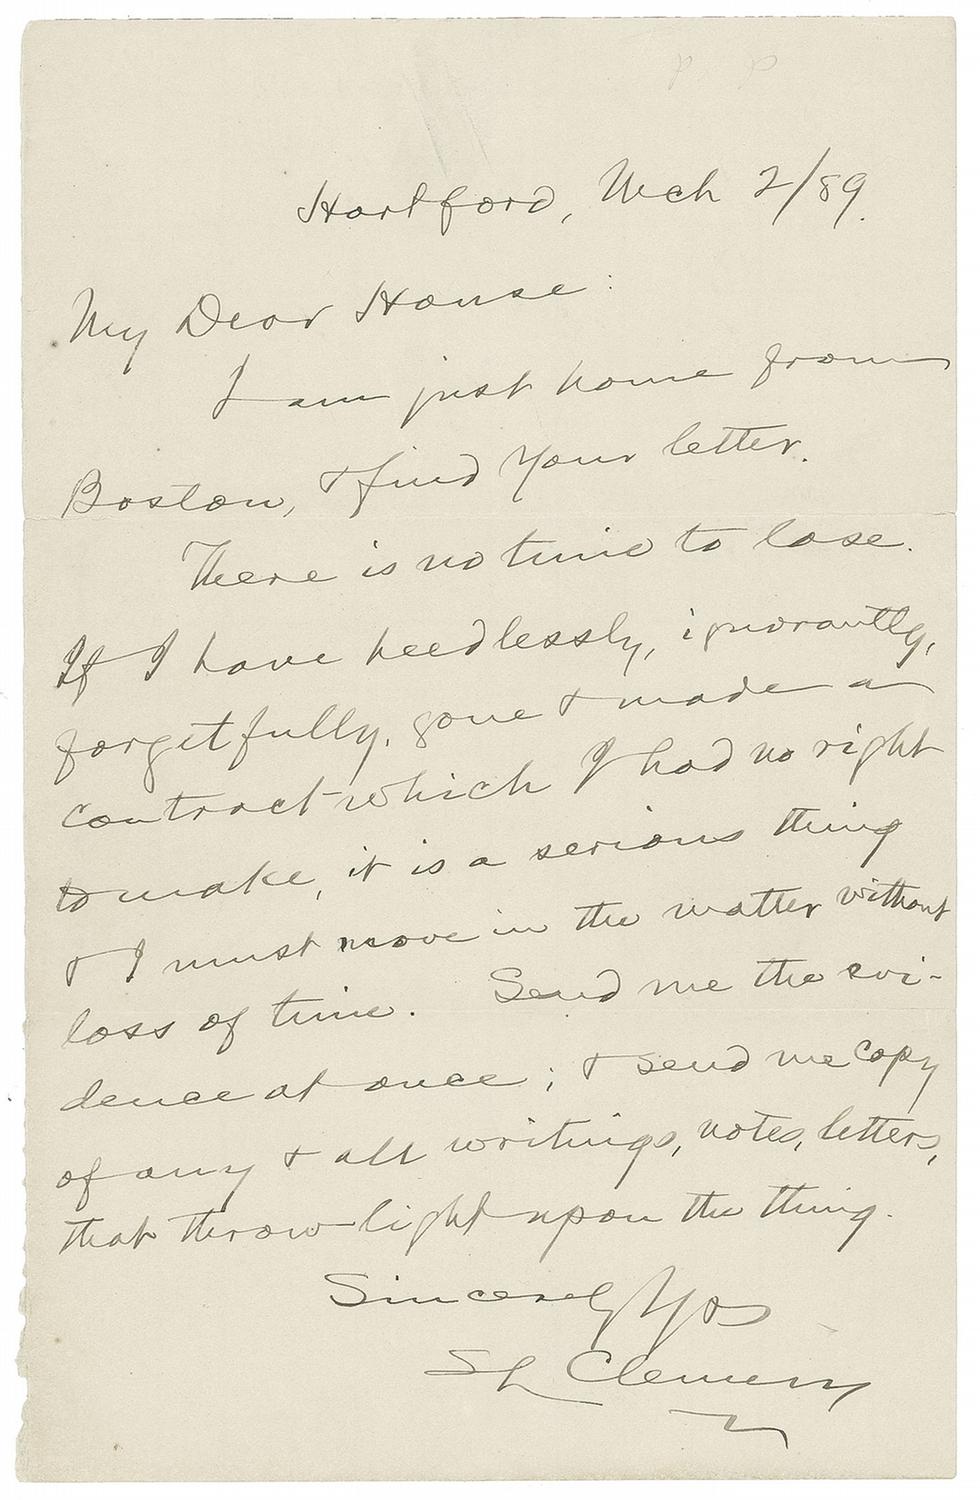 Hartford, Mch 2/89.
My Dear House:
I am just home from
Boston, & find your letter.
There is no time to lose.
If I have heedlessly, ignorantly,
forgetfully, gone & made a
contract which I had no right
to make, it is a serious thing
& I must move in the matter without
loss of time. Send me the evi-
dence at once; & send me copy
of any & all writings, notes, letters,
that throw light upon the thing.
Sincerely Yrs
SL Clemens